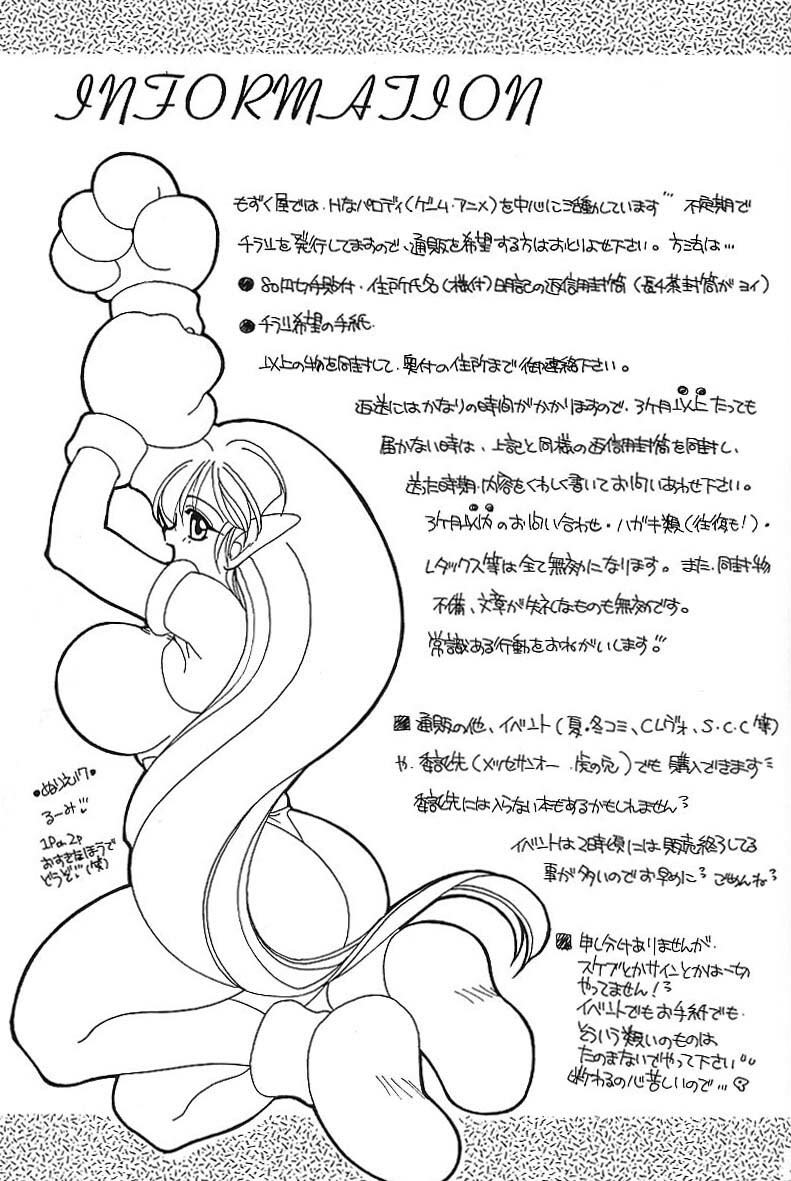 INFORMATION
もずく屋では、Hなパロディ(ゲーム・アニメ)を中心に活動しています 不定期で
チラシを発行してますので、通販を希望する方はおとりよせ下さい。方法は…
●80円切手貼付・住所氏名(様付)明記の返信用封筒(長4茶封筒がヨイ)
●チラシ希望の手紙.
以上の物を同封して、奥付の住所まで御連絡下さい。
返送にはかなりの時間がかかりますので、3ケ月以上たっても
届かない時は、上記と同様の返信用封筒を同封し、
送た時期・内容をくわしく書いてお問いあわせ下さい。
3ケ月以内のお問い合わせ・ハガキ類(往復も!)・
Lタックス等は全て無効になります。また、同封物
不備、文章が失礼なものも無効です。
常識ある行動をおねがいします!!
■通販の他、イベント(夏・冬コミ、Cレヴォ、S.C.C等)
や、委託先(メッセサンオー、虎の穴)でも購入できます
委託先には入らない本もあるかもしれません
イベントは2時頃には販売終了してる
事が多いのでお早めに ごめんね
■申し分けありませんが、
スケブとかサインとかは一切
やってません!
イベントでもお手紙でも、
そういう類いのものは
たのまないでやって下さい
断わるの心苦しいので…
•ぬりえ!?•
るーみぃ
1P or 2P
おすきなほうで
どうぞ(笑)